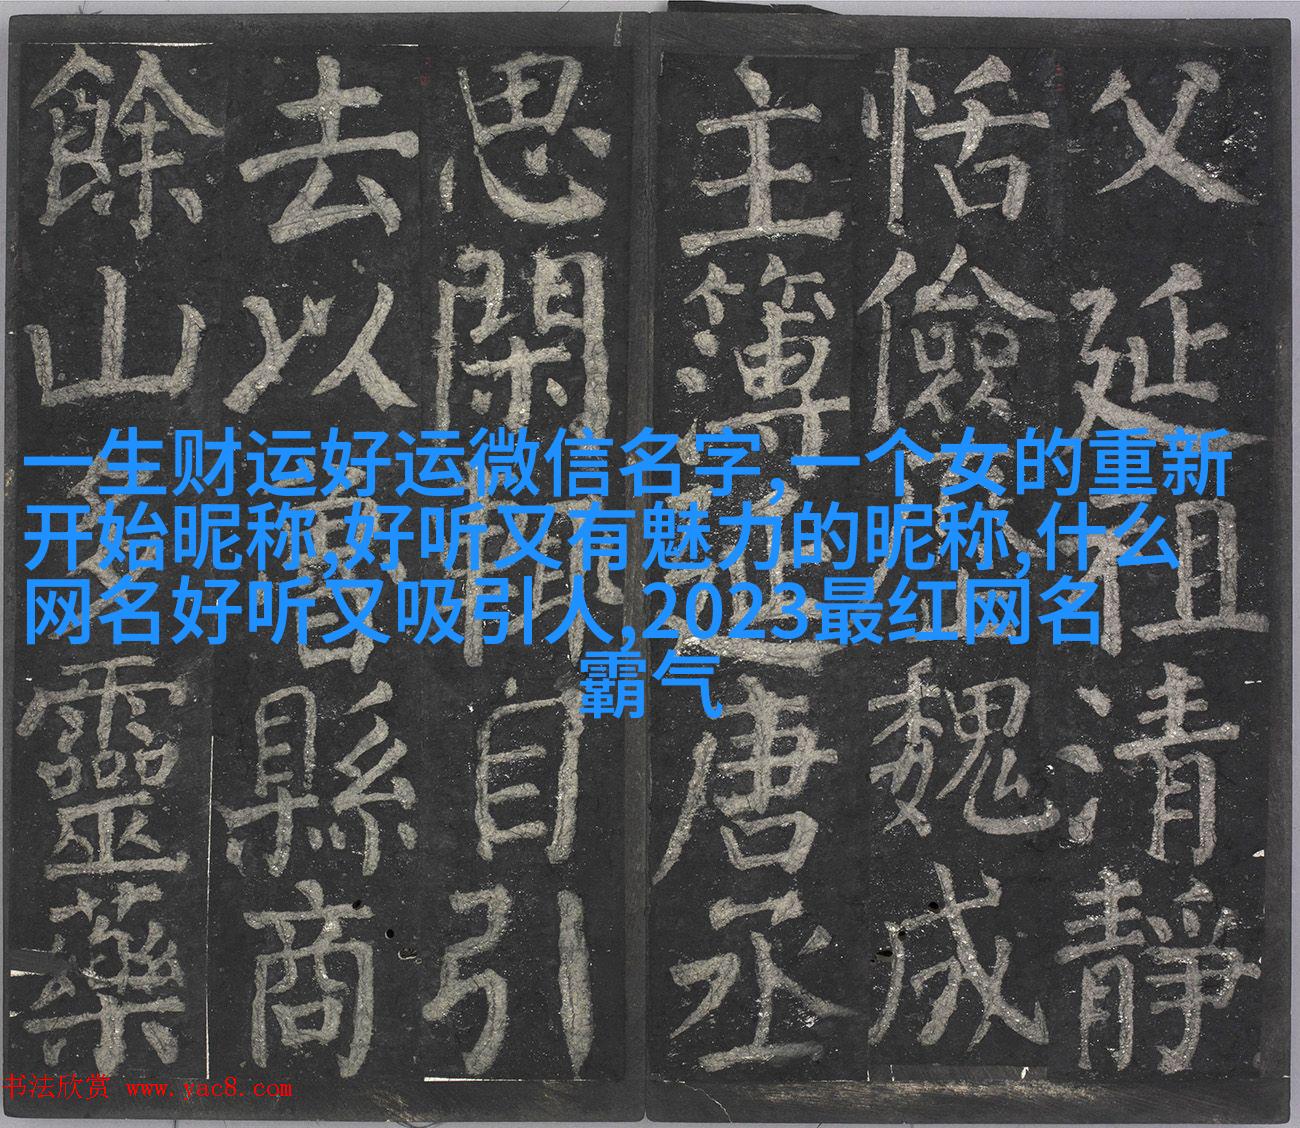 父延祖清靜
恬儉魏成
主簿唐丞
思閑自引
去以縣商
餘山靈藥
一生财运好运微信名字,一个女的重新
开始昵称,好听又有魅力的昵称,什么
网名好听又吸引人,2023最红网名
霸气
书法欣赏 www.yac8.com